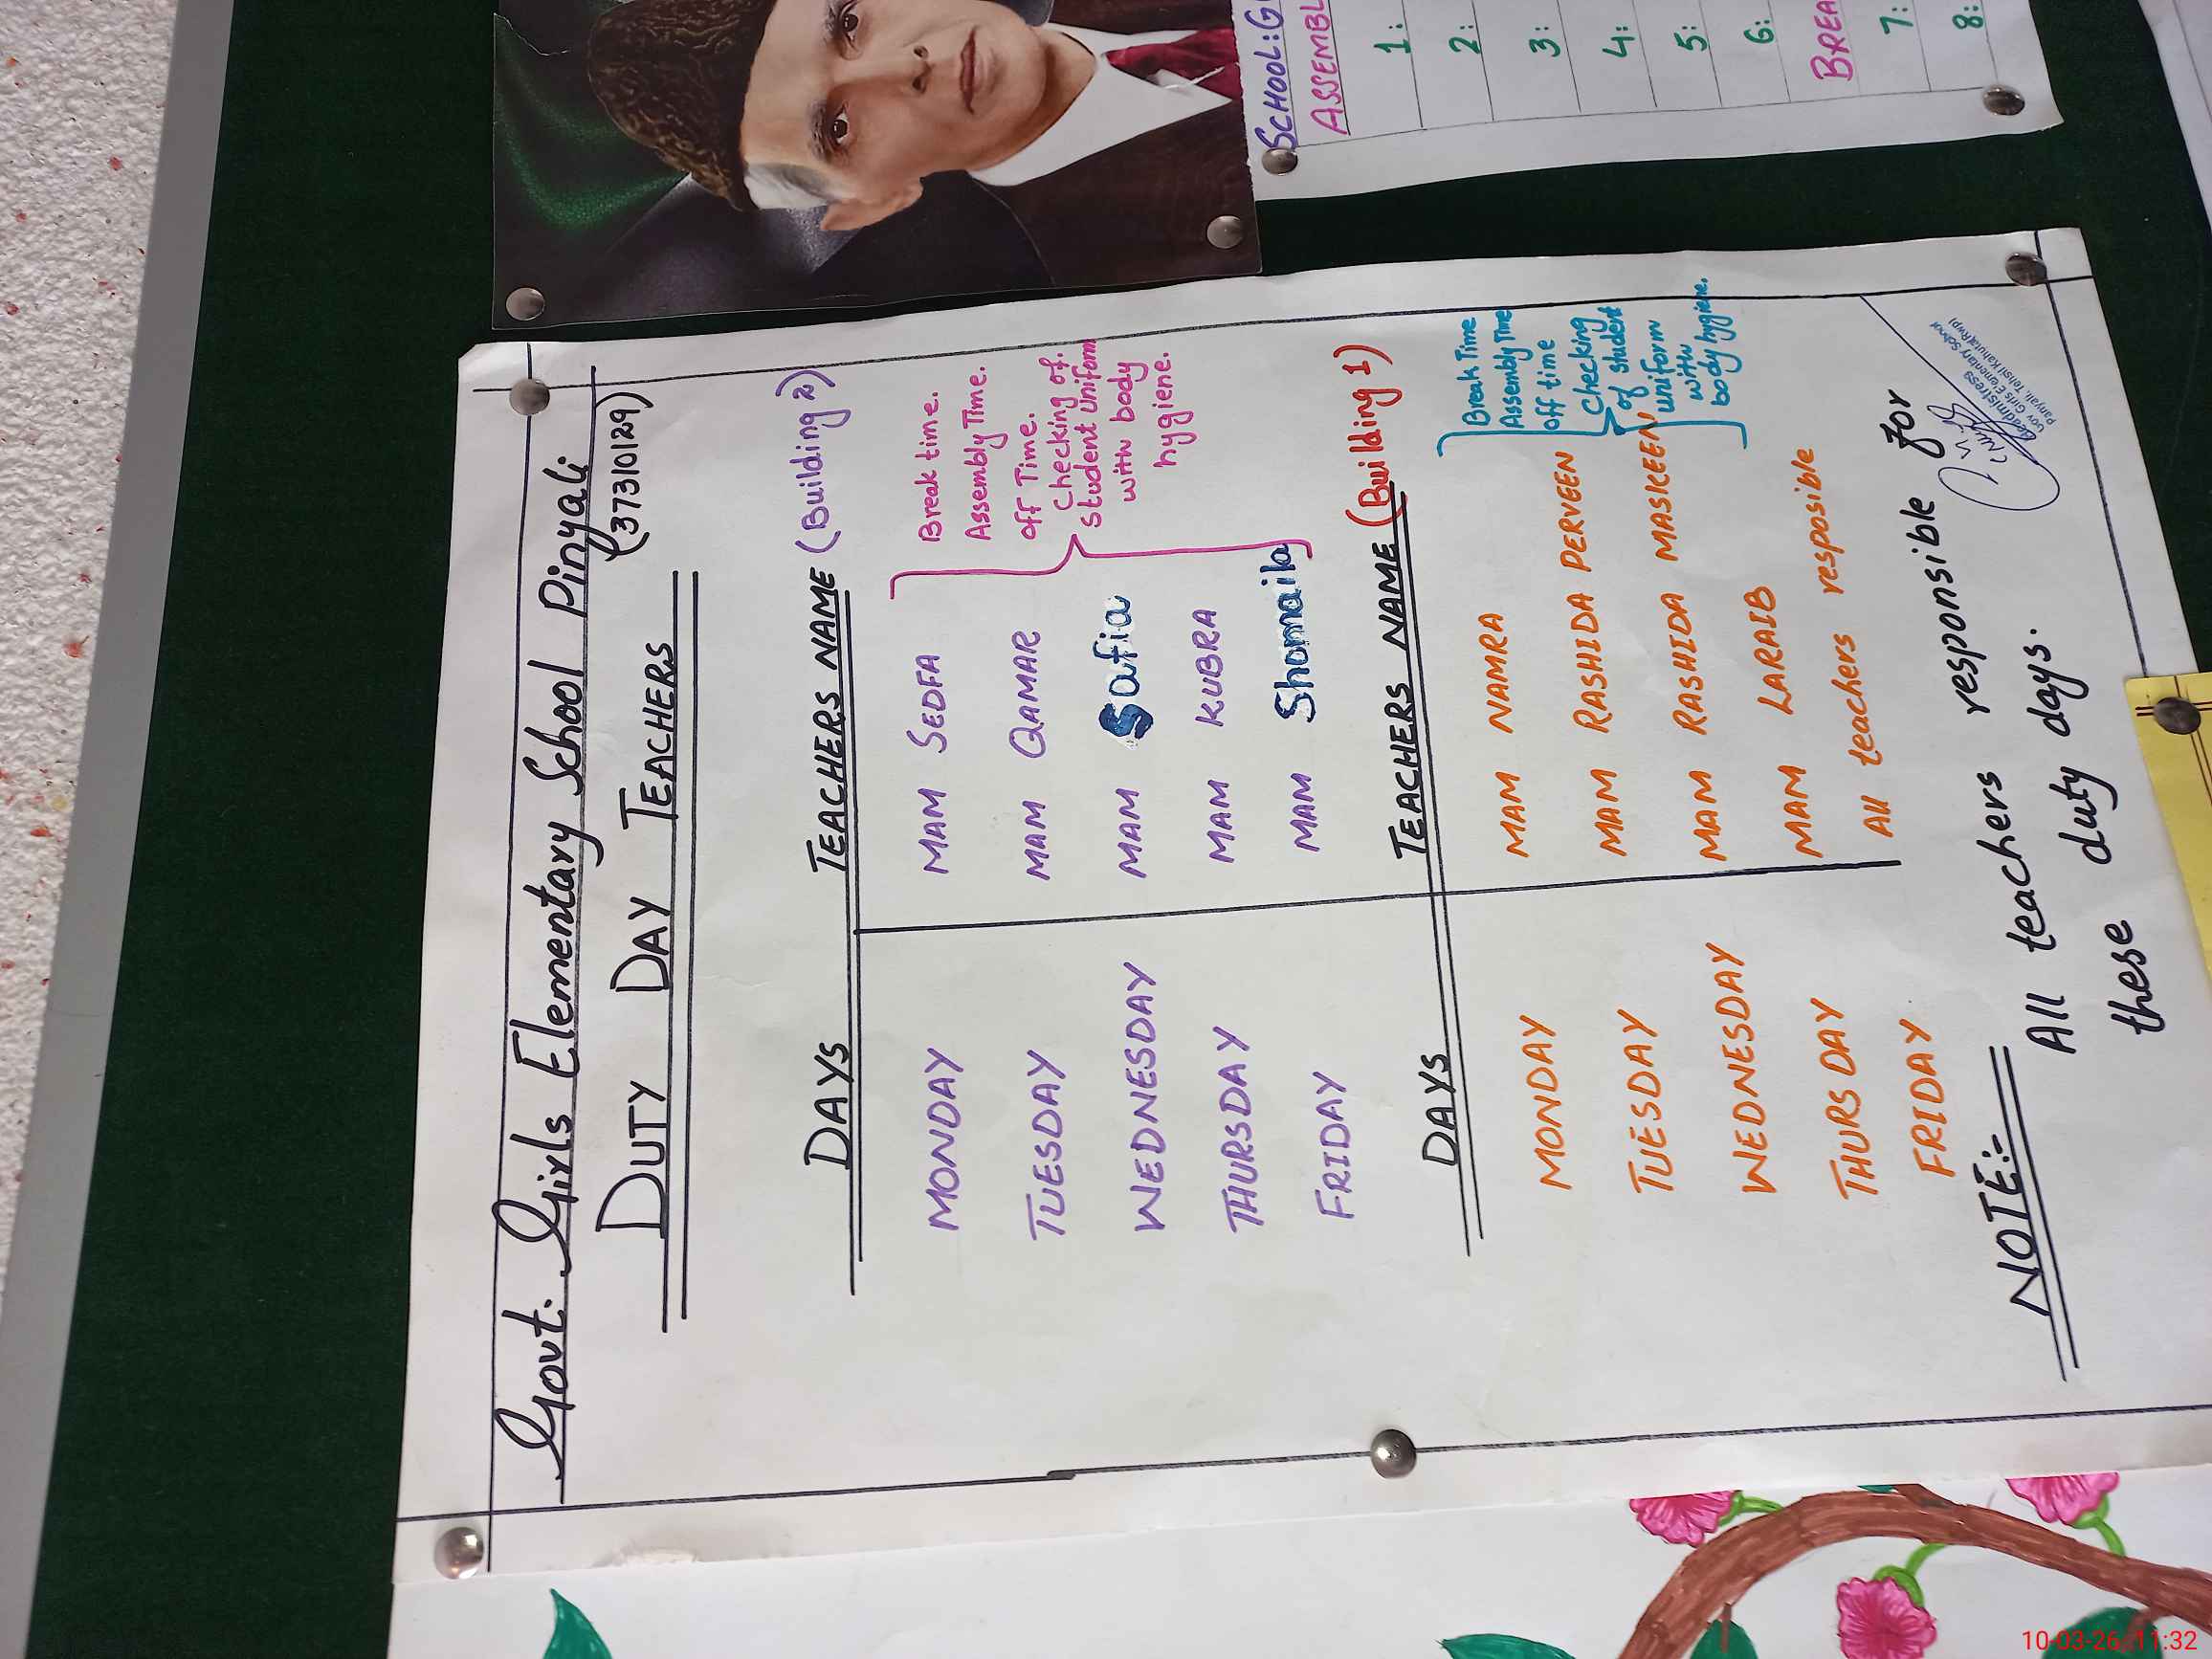 Govt. Girls Elementary School Pinyali
(37310129)
DUTY DAY TEACHERS
DAYS TEACHERS NAME (Building 2)
MONDAY MAM SEDFA
TUESDAY MAM QAMAR
WEDNESDAY MAM Safia
THURSDAY MAM KUBRA
FRIDAY MAM Shomaila
Break time.
Assembly Time.
off Time.
Checking of.
Student Uniform
with body
hygiene.
DAYS TEACHERS NAME (Building 1)
MONDAY MAM NAMRA
TUESDAY MAM RASHIDA PERVEEN
WEDNESDAY MAM RASHIDA MASKEEN
THURSDAY MAM LARAIB
FRIDAY All teachers resposible
Break Time
Assembly Time
off time
Checking
of student
uniform
with
body hygiene.
NOTE:-
All teachers responsible for
these duty days.
Headmistress
Gov. Girls Elementary School
Panyali, Tehsil Kahuta(Rwp)
SCHOOL: G
ASSEMBL
1:
2:
3:
4:
5:
6:
BREA
7:
8:
10-03-26, 11:32